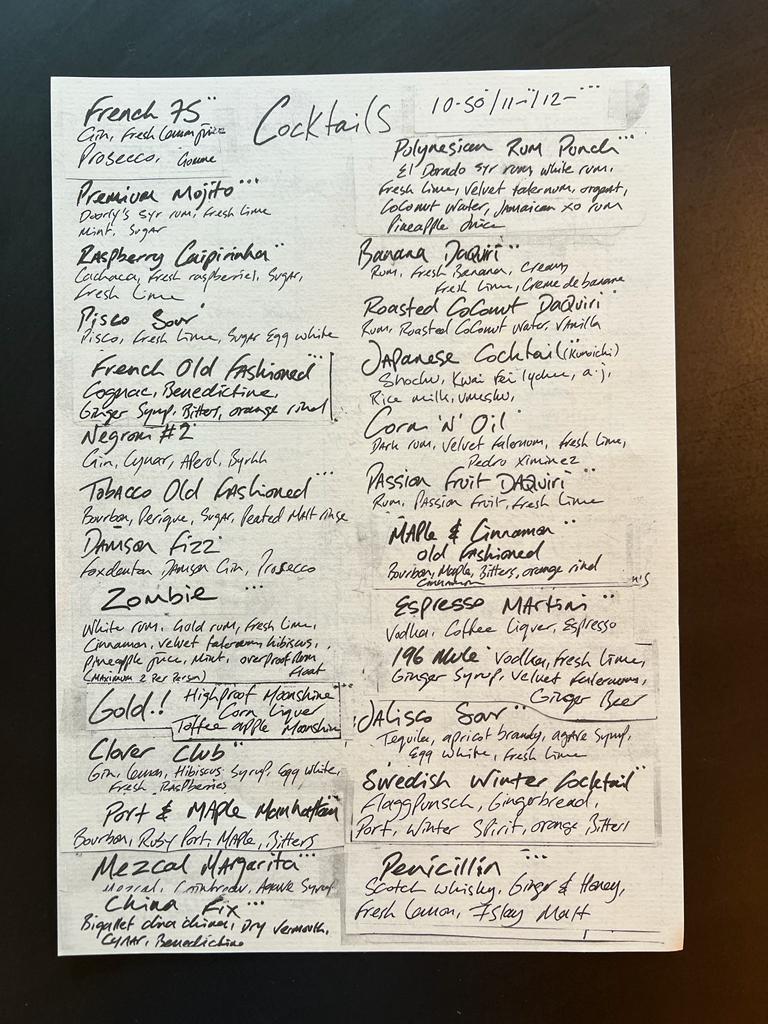 Cocktails
10-50 / 11- / 12-
French 75
Gin, Fresh Lemon juice
Prosecco, Gomme
Premium Mojito
Doorly's 5yr rum, Fresh Lime
Mint, Sugar
Raspberry Caipirinha
Cachaca, Fresh raspberries, Sugar,
Fresh Lime
Pisco Sour
Pisco, Fresh Lime, Sugar Egg white
French Old Fashioned
Cognac, Benedictine,
Ginger Syrup, Bitters, orange rind
Negroni #2
Gin, Cynar, Aperol, Byrhh
Tobacco Old Fashioned
Bourbon, Perique, Sugar, Peated Malt rinse
Damson Fizz
Foxdenton Damson Gin, Prosecco
Zombie
White rum, Gold rum, Fresh Lime,
Cinnamon, Velvet falernum, hibiscus,
pineapple juice, Mint, overproof Rum
(Maximum 2 Per Person) Float
Gold.! High proof Moonshine
Corn Liquer
Toffee apple Moonshine
Clover Club
Gin, Lemon, Hibiscus Syrup, Egg White,
Fresh Raspberries
Port & Maple Manhattan
Bourbon, Ruby Port, Maple, Bitters
Mezcal Margarita
Mezcal, Cointreau, Agave Syrup
China Fix
Bigallet china china, Dry Vermouth,
Cynar, Benedictine
Polynesian Rum Punch
El Dorado 5yr rum, white rum,
Fresh Lime, Velvet falernum, orgeat,
Coconut Water, Jamaican xo rum
Pineapple Juice
Banana Daquiri
Rum, Fresh Banana, Cream
Fresh Lime, Creme de banane
Roasted Coconut Daquiri
Rum, Roasted Coconut water, Vanilla
Japanese Cocktail (Kunoichi)
Shochu, Kwai Fei lychee, a.j,
Rice milk, umeshu,
Corn 'N' Oil
Dark rum, Velvet falernum, Fresh Lime,
Pedro Ximinez
Passion Fruit Daquiri
Rum, Passion Fruit, Fresh Lime
Maple & Cinnamon
Old Fashioned
Bourbon, Maple, Bitters, orange rind
Cinnamon
Espresso Martini
Vodka, Coffee Liquer, Espresso
196 Mule Vodka, Fresh Lime,
Ginger Syrup, Velvet falernum,
Ginger Beer
Jalisco Sour
Tequila, apricot brandy, agave Syrup,
Egg White, Fresh Lime
Swedish Winter Cocktail
FlaggPunsch, Gingerbread,
Port, Winter Spirit, orange Bitters
Penicillin
Scotch Whisky, Ginger & Honey,
Fresh Lemon, Islay Malt